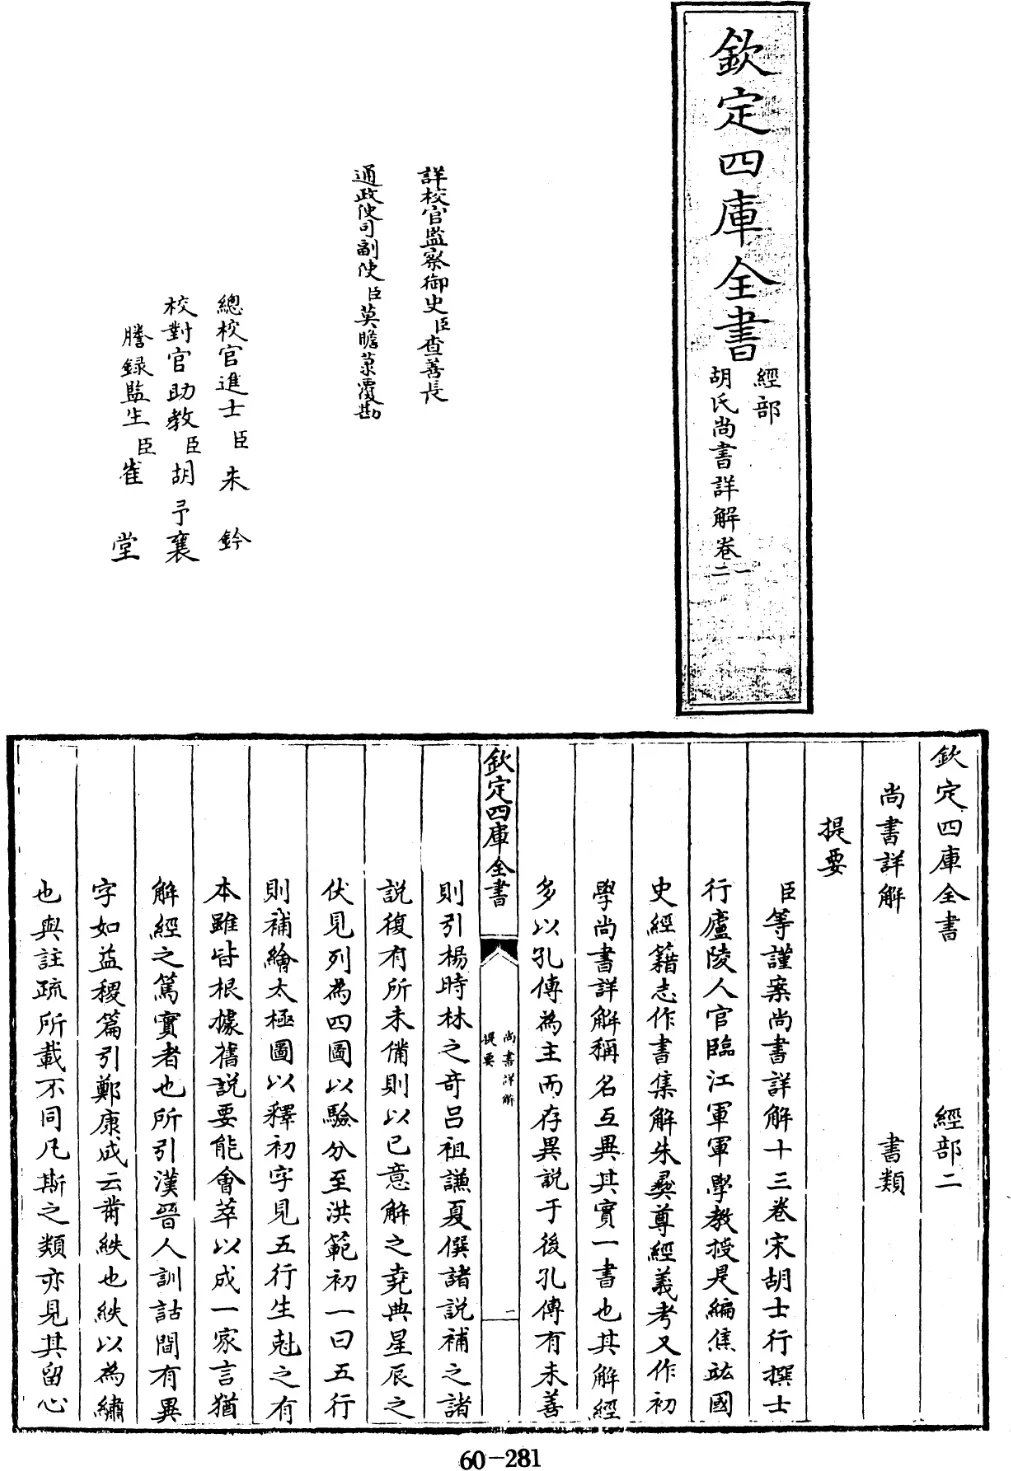 欽定四庫全書
經部
胡氏尚書詳解卷一二
詳校官監察御史臣查善長
通政使司副使臣莫瞻菉覆勘
總校官進士臣朱鈐
校對官助教臣胡予襄
謄錄監生臣崔堂
欽定四庫全書 經部二
尚書詳解 書類
提要
臣等謹案尚書詳解十三卷宋胡士行撰士
行廬陵人官臨江軍軍學教授是編焦竑國
史經籍志作書集解朱彝尊經義考又作初
學尚書詳解稱名互異其實一書也其解經
多以孔傳為主而存異說于後孔傳有未善
欽定四庫全書
尚書詳解
提要
一
則引楊時林之奇呂祖謙夏僎諸說補之諸
說復有所未備則以己意解之堯典星辰之
伏見列為四圖以驗分至洪範初一曰五行
則補繪太極圖以釋初字見五行生剋之有
本雖皆根據舊說要能會萃以成一家言猶
解經之篤實者也所引漢晉人訓詁間有異
字如益稷篇引鄭康成云黹紩也紩以為繡
也與註疏所載不同凡斯之類亦見其留心
60-281